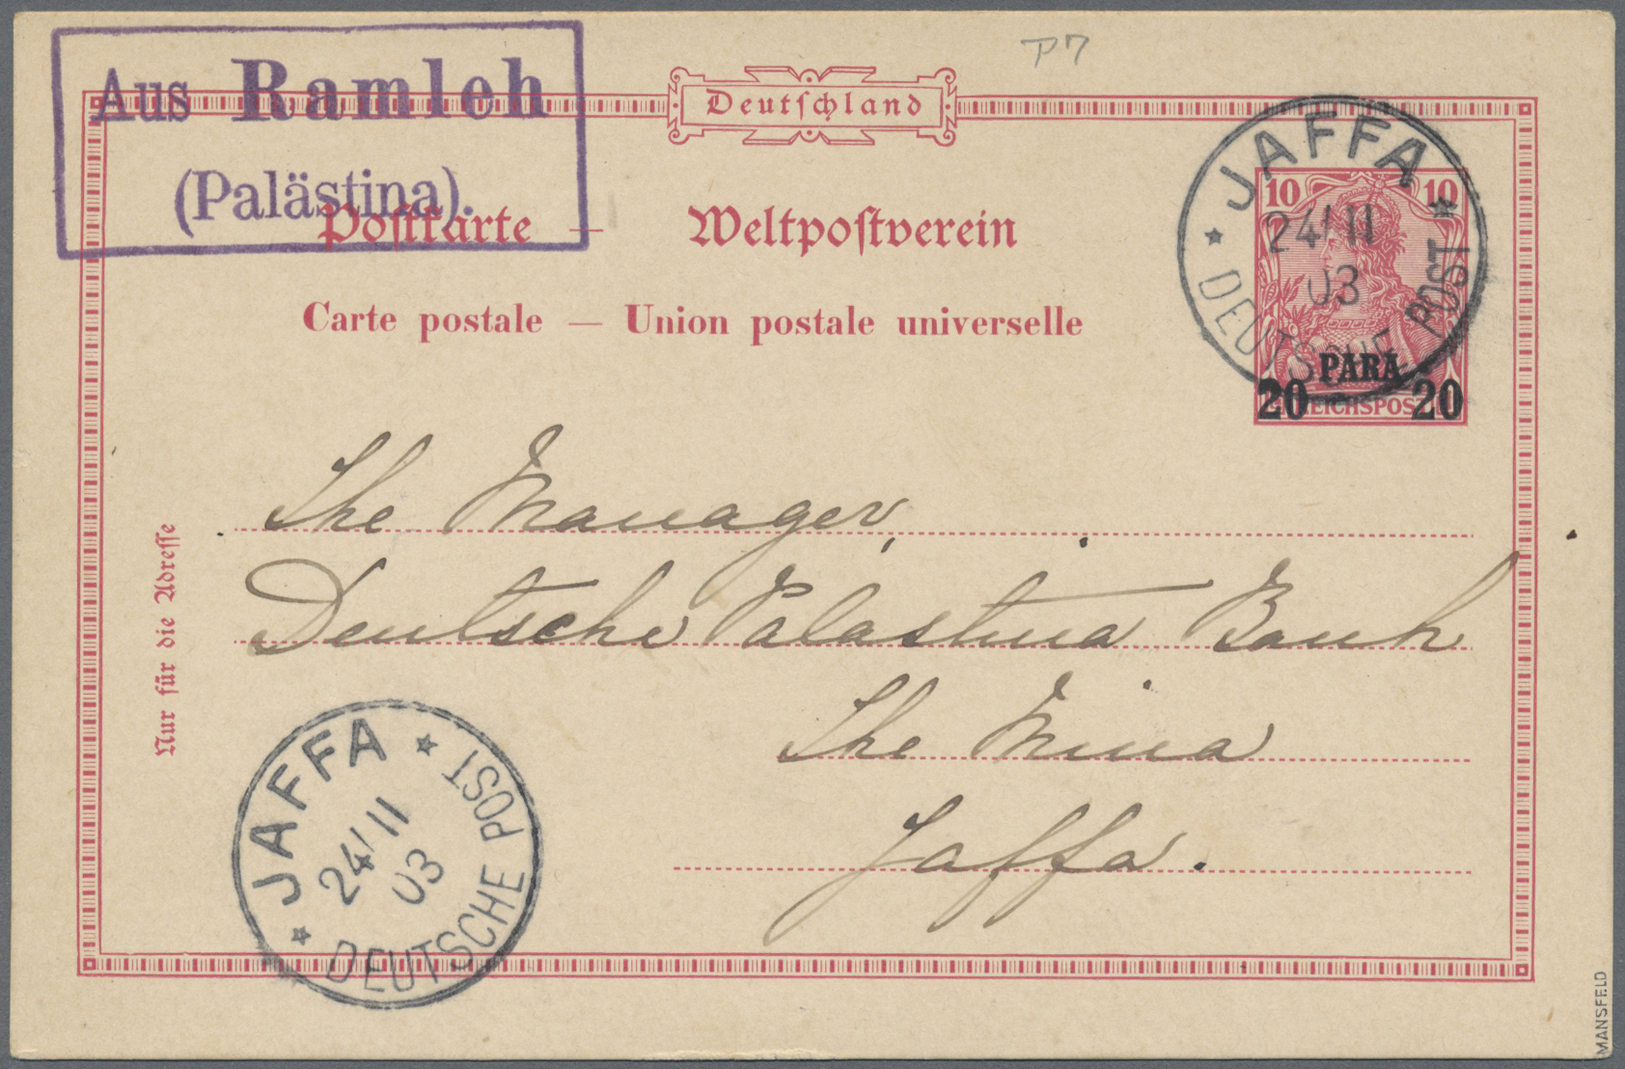 P7
Aus Ramleh
(Palästina).
Deutschland
Postkarte — Weltpostverein
Carte postale — Union postale universelle
JAFFA
24/11
03
* DEUTSCHE POST *
10 10
REICHSPOST
20 PARA 20
Nur für die Adresse
The Manager,
Deutsche Palästina Bank
The Mina
Jaffa.
JAFFA
24/11
03
* DEUTSCHE POST *
MANSFELD